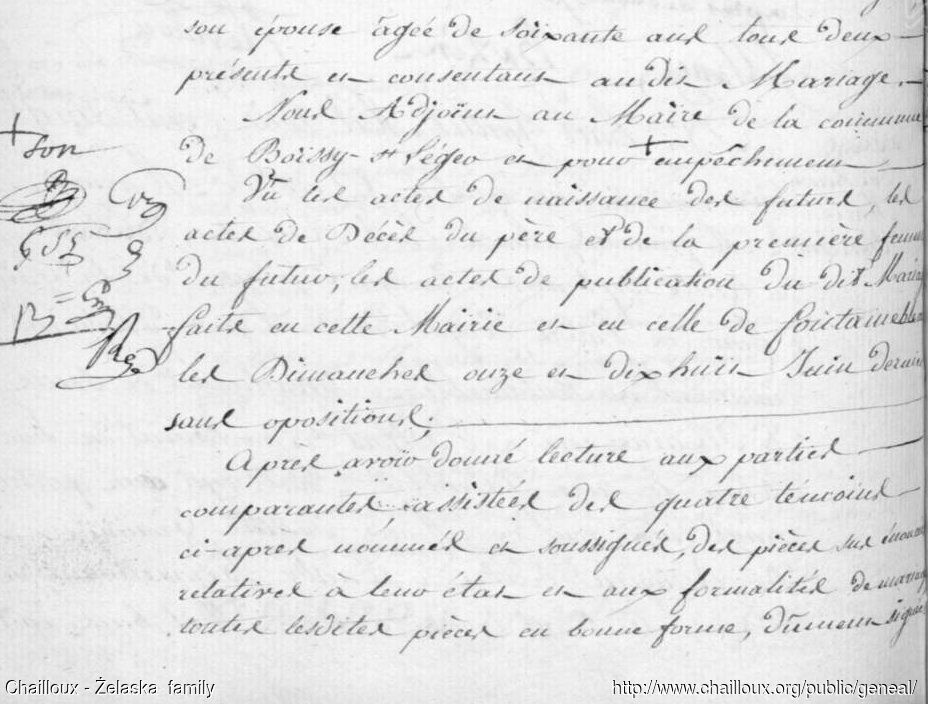 son épouse âgée de soixante ans tous deux
présents et consentans au dit Mariage.
Nous Adjoint au Maire de la commune
de Boissy-St Léger et pour + empêchement
+ son
Vu les actes de naissance des futurs, les
actes de Décès du père et de la première femme
du futur, les actes de publication du dit Mariage
faits en cette Mairie et en celle de fontainebleau
les Dimanches onze et dixhuit Juin dernier
sans opositions;
Après avoir donné lecture aux parties
comparantes, assistées des quatre témoins
ci-après nommés et soussignés, des pièces sus énoncées
relatives à leur état et aux formalités de mariage
toutes lesdites pièces en bonne forme, dûment signées
Chailloux - Želaska family
http://www.chailloux.org/public/geneal/